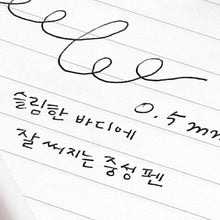 0.5 mm
슬림한 바디에
잘 써지는 중성펜